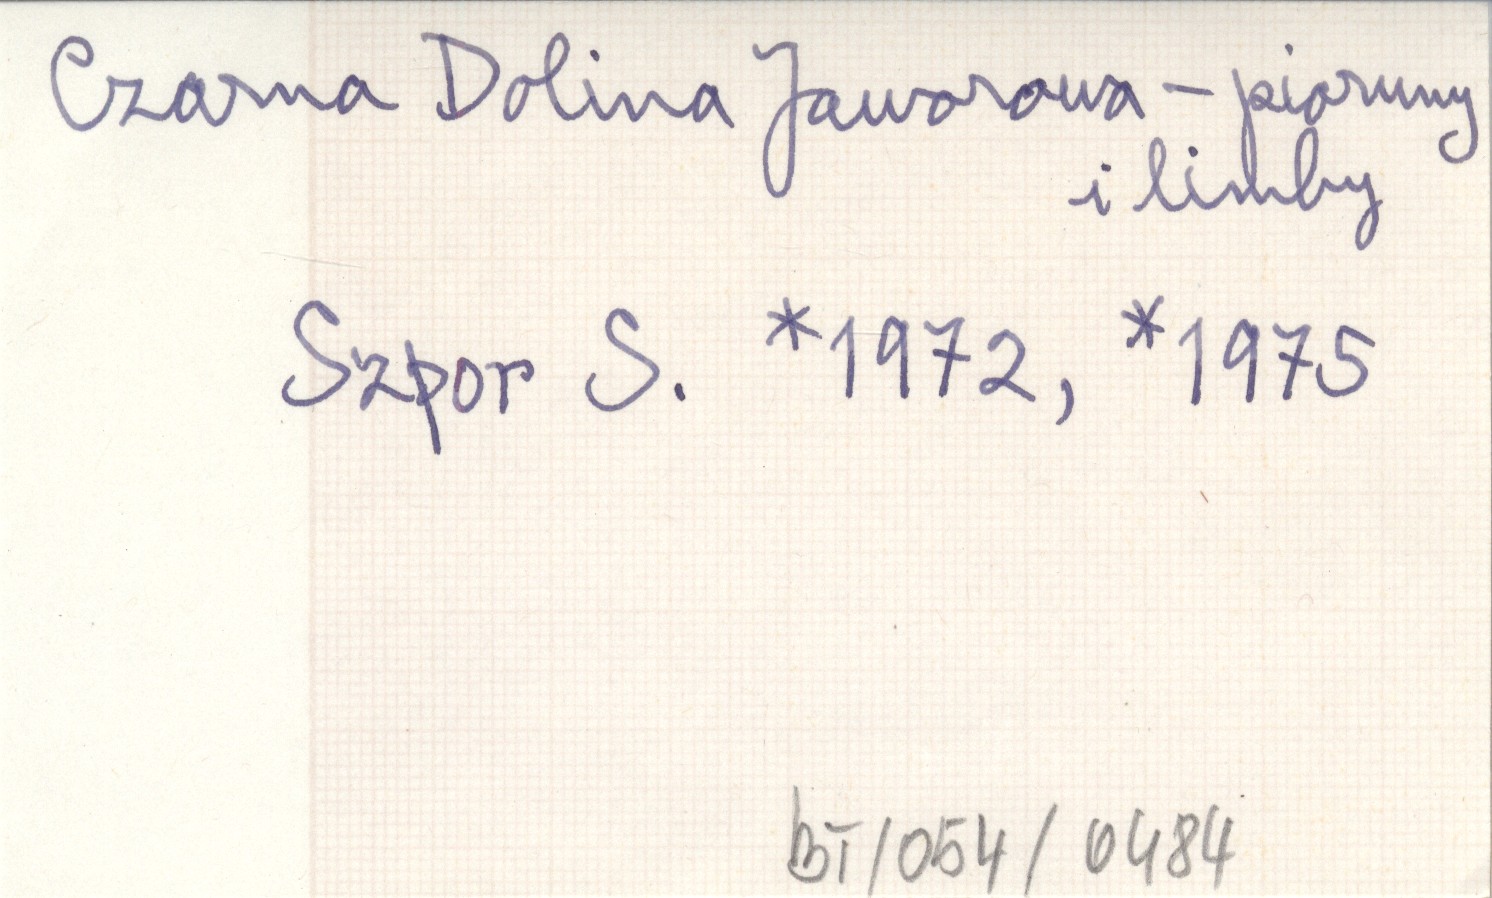 Czarna Dolina Jaworowa – pioruny
i limby
Szpor S. *1972, *1975
BT/054/0484